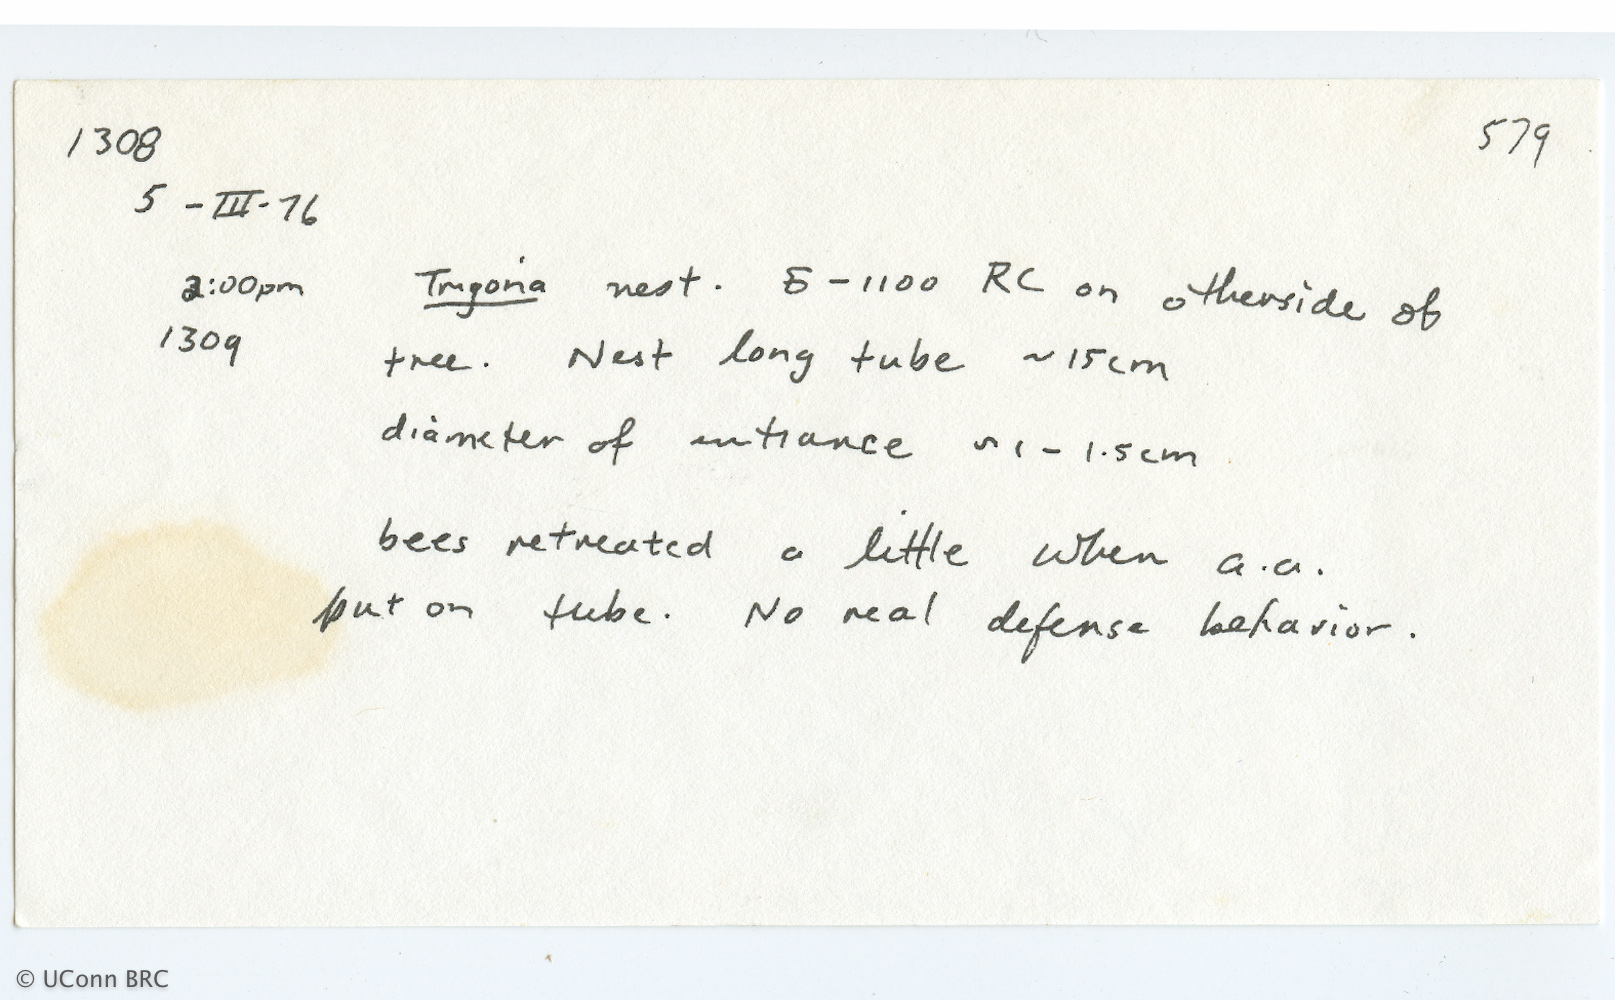 1308 579
5-III-76
2:00pm Trigona nest. E-1100 RC on otherside of
1309 tree. Nest long tube ~15cm
diameter of entrance ~1-1.5cm
bees retreated a little when a.a.
put on tube. No real defense behavior.
© UConn BRC